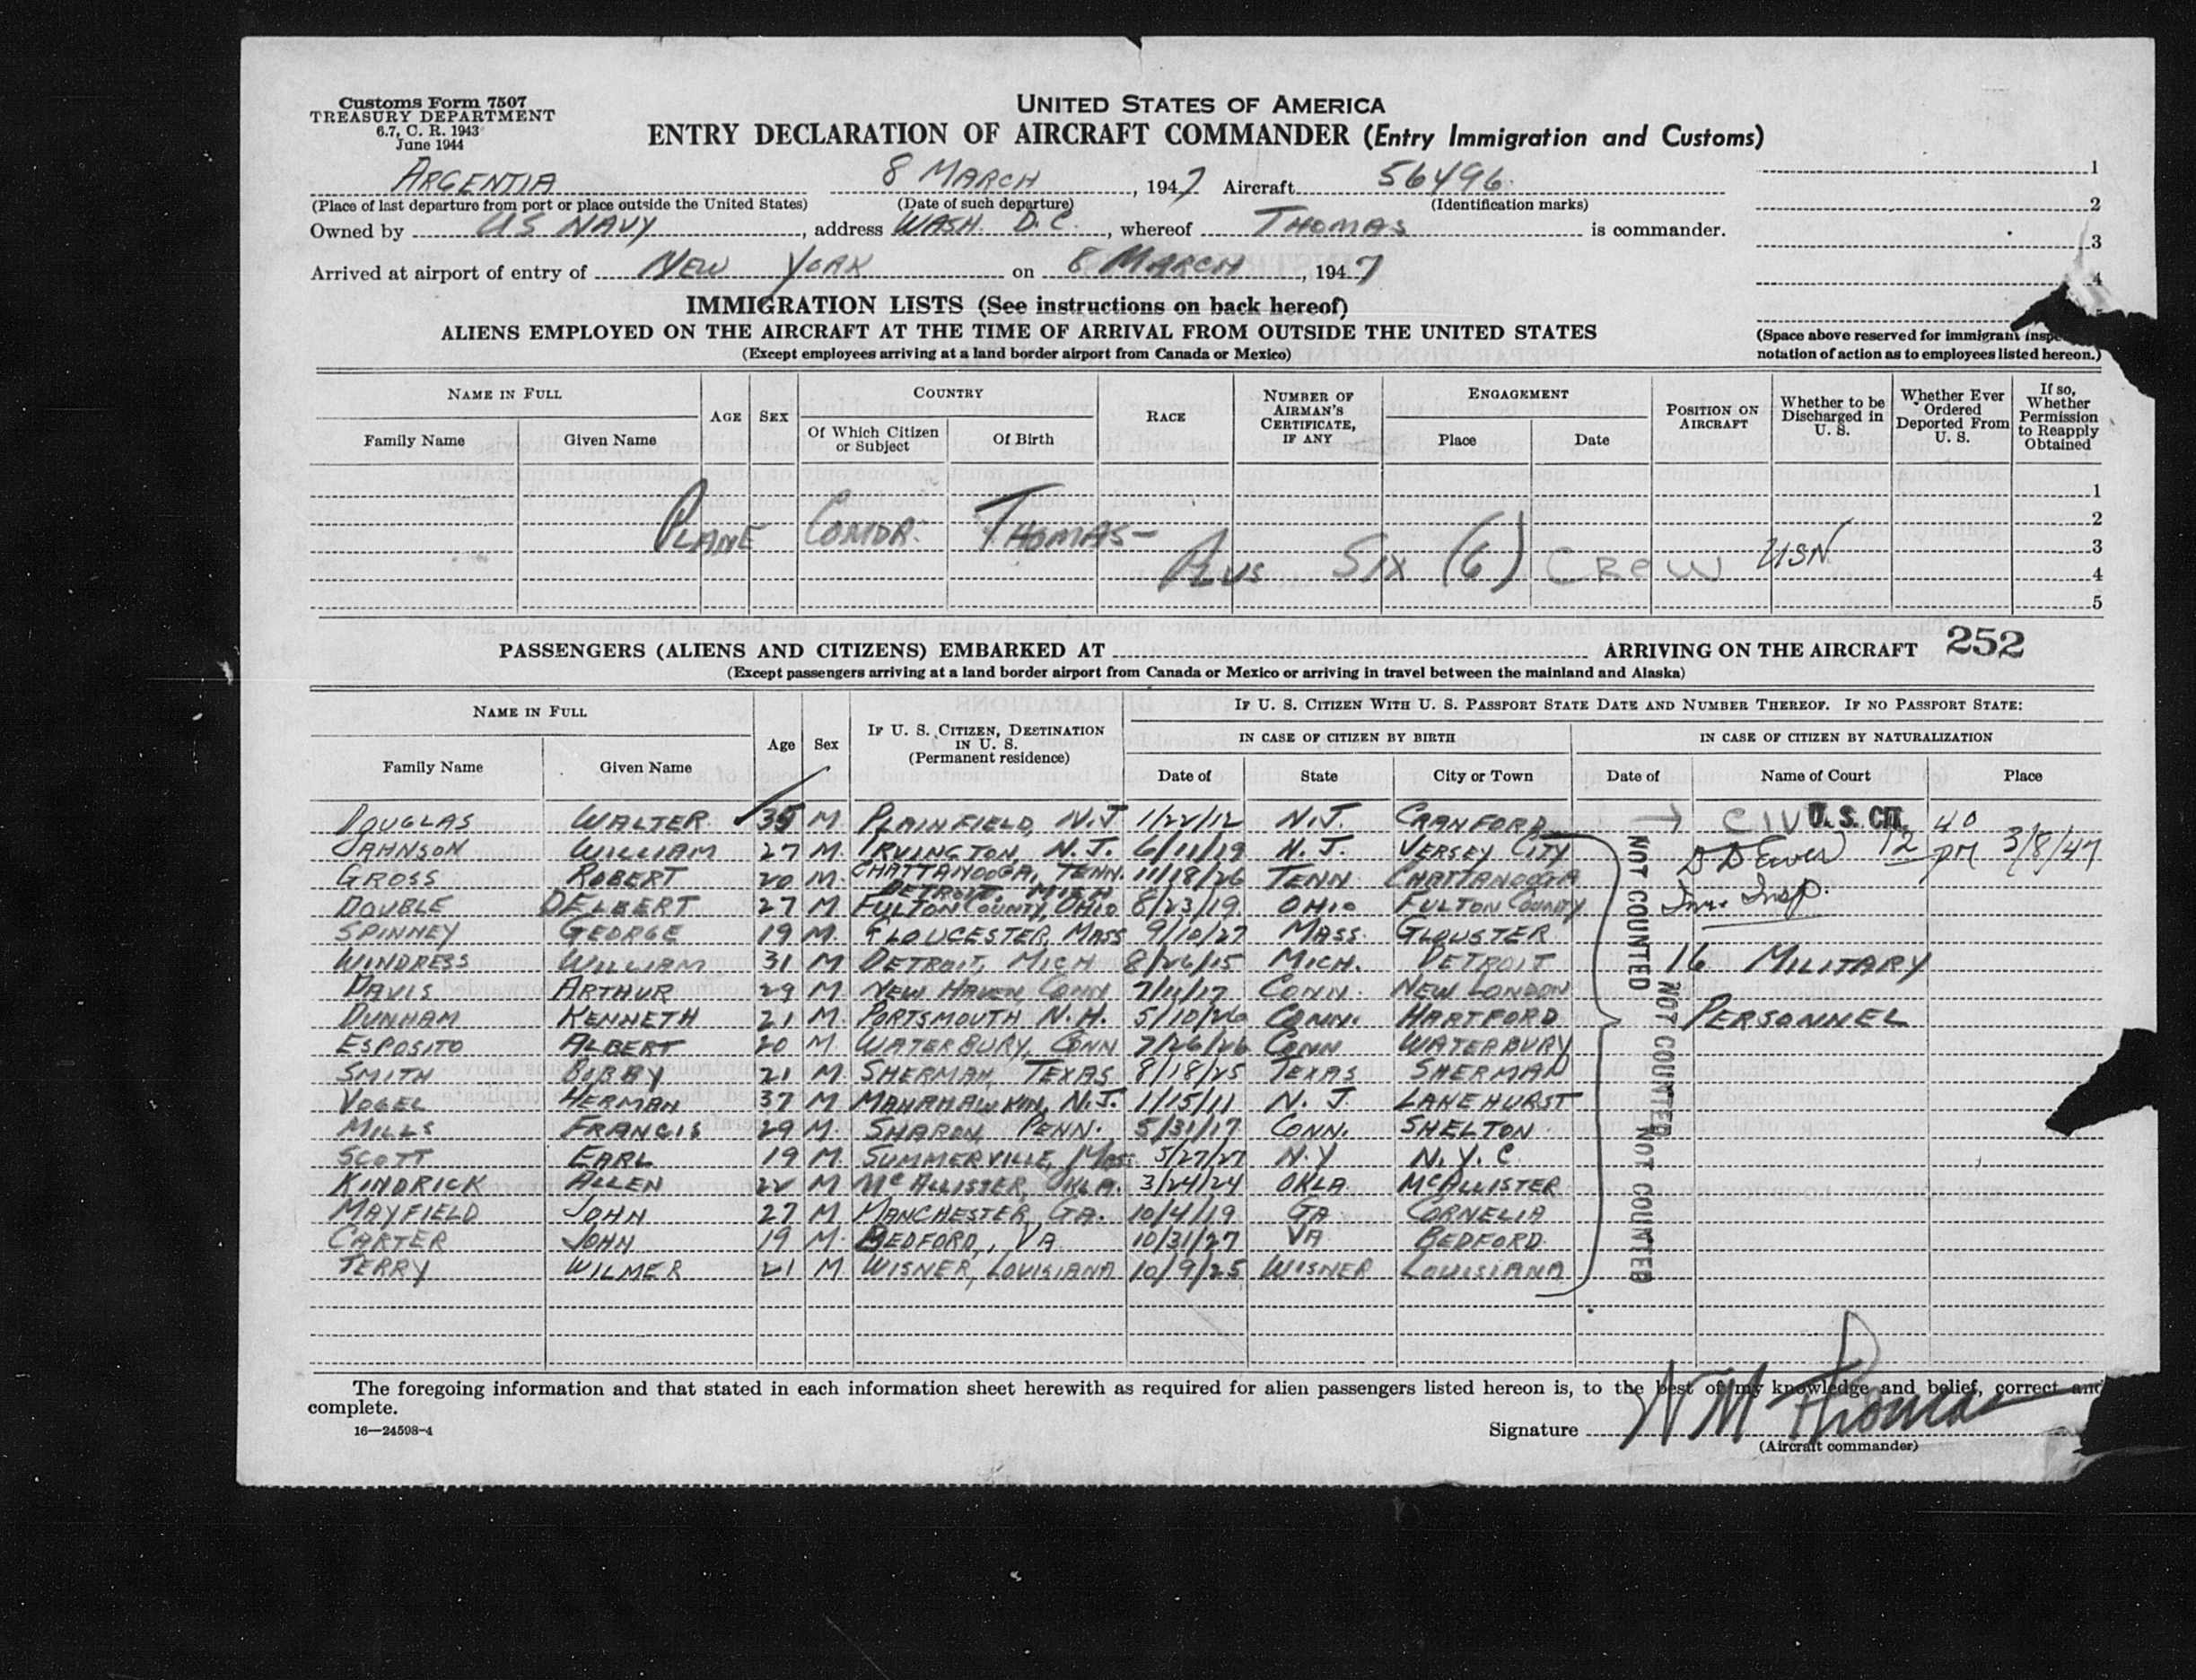 Customs Form 7507
TREASURY DEPARTMENT
6.7, C. R. 1943
June 1944
UNITED STATES OF AMERICA
ENTRY DECLARATION OF AIRCRAFT COMMANDER (Entry Immigration and Customs)
ARGENTIA 8 MARCH, 1947 Aircraft 56496
(Place of last departure from port or place outside the United States) (Date of such departure) (Identification marks)
Owned by US NAVY, address WASH. D.C., whereof THOMAS is commander.
Arrived at airport of entry of NEW YORK on 8 MARCH, 1947
1
2
3
4
(Space above reserved for immigrant
notation of action as to employees listed hereon.)
IMMIGRATION LISTS (See instructions on back hereof)
ALIENS EMPLOYED ON THE AIRCRAFT AT THE TIME OF ARRIVAL FROM OUTSIDE THE UNITED STATES
(Except employees arriving at a land border airport from Canada or Mexico)
NAME IN FULL
Family Name Given Name
AGE SEX
COUNTRY
Of Which Citizen or Subject Of Birth
RACE
NUMBER OF AIRMAN'S CERTIFICATE, IF ANY
ENGAGEMENT
Place Date
POSITION ON AIRCRAFT
Whether to be Discharged in U. S.
Whether Ever Ordered Deported From U. S.
If so, Whether Permission to Reapply Obtained
1
2
PLANE COMDR. THOMAS- 3
PLUS SIX (6) CREW USN 4
5
PASSENGERS (ALIENS AND CITIZENS) EMBARKED AT ARRIVING ON THE AIRCRAFT 252
(Except passengers arriving at a land border airport from Canada or Mexico or arriving in travel between the mainland and Alaska)
NAME IN FULL
Family Name Given Name
Age Sex
IF U. S. CITIZEN, DESTINATION IN U. S.
(Permanent residence)
IF U. S. CITIZEN WITH U. S. PASSPORT STATE DATE AND NUMBER THEREOF. IF NO PASSPORT STATE:
IN CASE OF CITIZEN BY BIRTH IN CASE OF CITIZEN BY NATURALIZATION
Date of State City or Town Date of Name of Court Place
DOUGLAS WALTER 35 M PLAINFIELD, N.J 1/22/12 N.J. CRANFORD → CIV U. S. CIT.
JAHNSON WILLIAM 27 M. IRVINGTON, N.J. 6/11/19 N.J. VERSEY CITY 12 40 PM 3/8/47
GROSS ROBERT 20 M. CHATTANOOGA, TENN. 11/18/26 TENN CHATTANOOGA
DETROIT, MICH
DOUBLE DELBERT 27 M FULTON COUNTY, OHIO 8/23/19 OHIO FULTON COUNTY Imm. Insp.
SPINNEY GEORGE 19 M. GLOUCESTER, MASS 9/10/27 MASS. GLOUSTER
WINDRESS WILLIAM 31 M DETROIT, MICH 8/26/15 MICH. DETROIT 16 MILITARY
DAVIS ARTHUR 29 M. NEW HAVEN, CONN 7/11/17 CONN. NEW LONDON
DUNHAM KENNETH 21 M. PORTSMOUTH N.H. 5/10/26 CONN. HARTFORD PERSONNEL
ESPOSITO ALBERT 20 M. WATERBURY, CONN 7/26/26 CONN WATERBURY
SMITH BOBBY 21 M. SHERMAN, TEXAS 8/18/25 TEXAS SHERMAN
VOGEL HERMAN 37 M MANAHAWKIN, N.J. 1/15/11 N. J. LAKEHURST
MILLS FRANCIS 29 M. SHARON, PENN. 5/31/17 CONN. SHELTON
SCOTT EARL 19 M. SUMMERVILLE, Mass. 5/27/27 N.Y N.Y.C.
KINDRICK ALLEN 22 M McALLISTER, OKLA. 3/24/24 OKLA McALLISTER
MAYFIELD JOHN 27 M MANCHESTER, GA. 10/4/19 GA CORNELIA
CARTER JOHN 19 M. BEDFORD, VA 10/31/27 VA BEDFORD
TERRY WILMER 21 M WISNER, LOUISIANA 10/9/25 WISNER LOUISIANA
NOT COUNTED
NOT COUNTED
NOT COUNTED
The foregoing information and that stated in each information sheet herewith as required for alien passengers listed hereon is, to the best of my knowledge and belief, correct and
complete.
16—24598-4
Signature W M Thomas
(Aircraft commander)